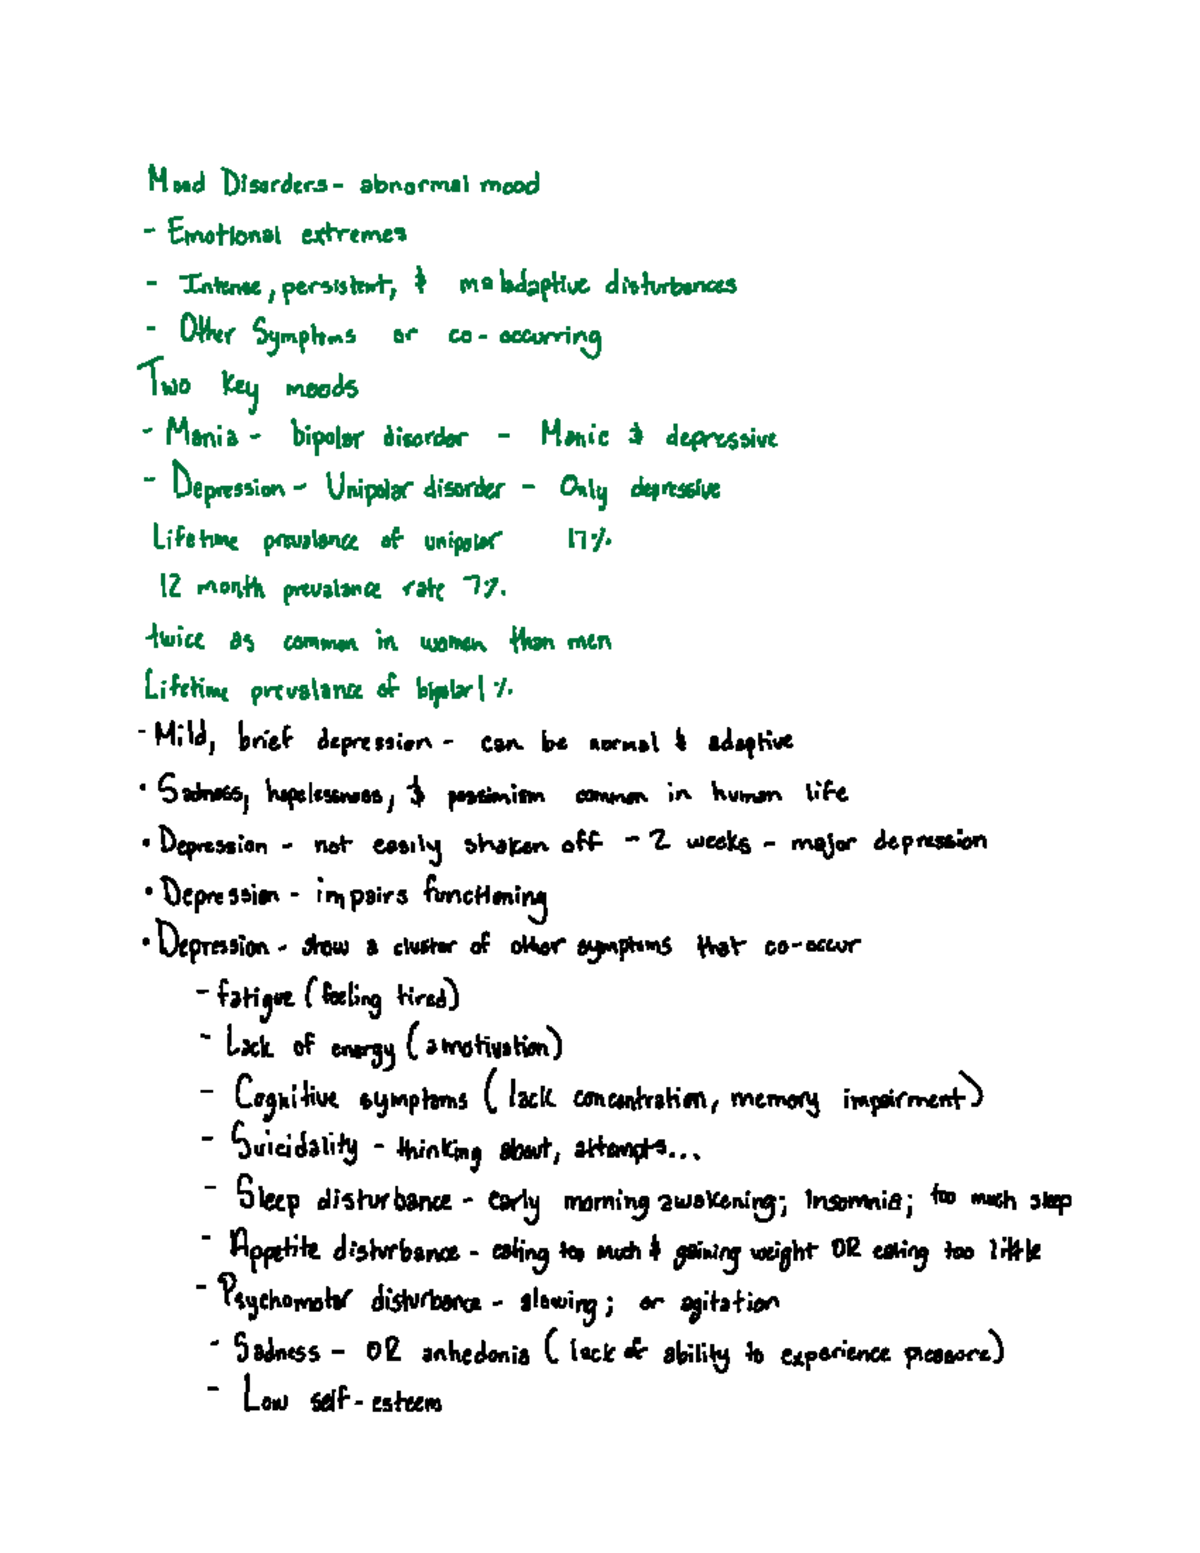 Mood Disorders - abnormal mood
- Emotional extremes
- Intense, persistent, & maladaptive disturbances
- Other Symptms or co-occurring
Two key moods
- Mania - bipolar disorder - Manic & depressive
- Depression - Unipolar disorder - Only depressive
Lifetime prevalance of unipolar 17%
12 month prevalance rate 7%.
twice as common in women than men
Lifetime prevalance of bipolar 1%
- Mild, brief depression - can be normal & adaptive
• Sadness, hopelessness, & pessimism common in human life
• Depression - not easily shaken off - 2 weeks - major depression
• Depression - impairs functioning
• Depression - show a cluster of other symptoms that co-occur
- fatigue (feeling tired)
- Lack of energy (amotivation)
- Cognitive symptoms (lack concentration, memory impairment)
- Suicidality - thinking about, attempts...
- Sleep disturbance - early morning awakening; Insomnia; too much sleep
- Appetite disturbance - eating too much & gaining weight OR eating too little
- Psychomotor disturbance - slowing; or agitation
- Sadness - OR anhedonia (lack of ability to experience pleasure)
- Low self-esteem